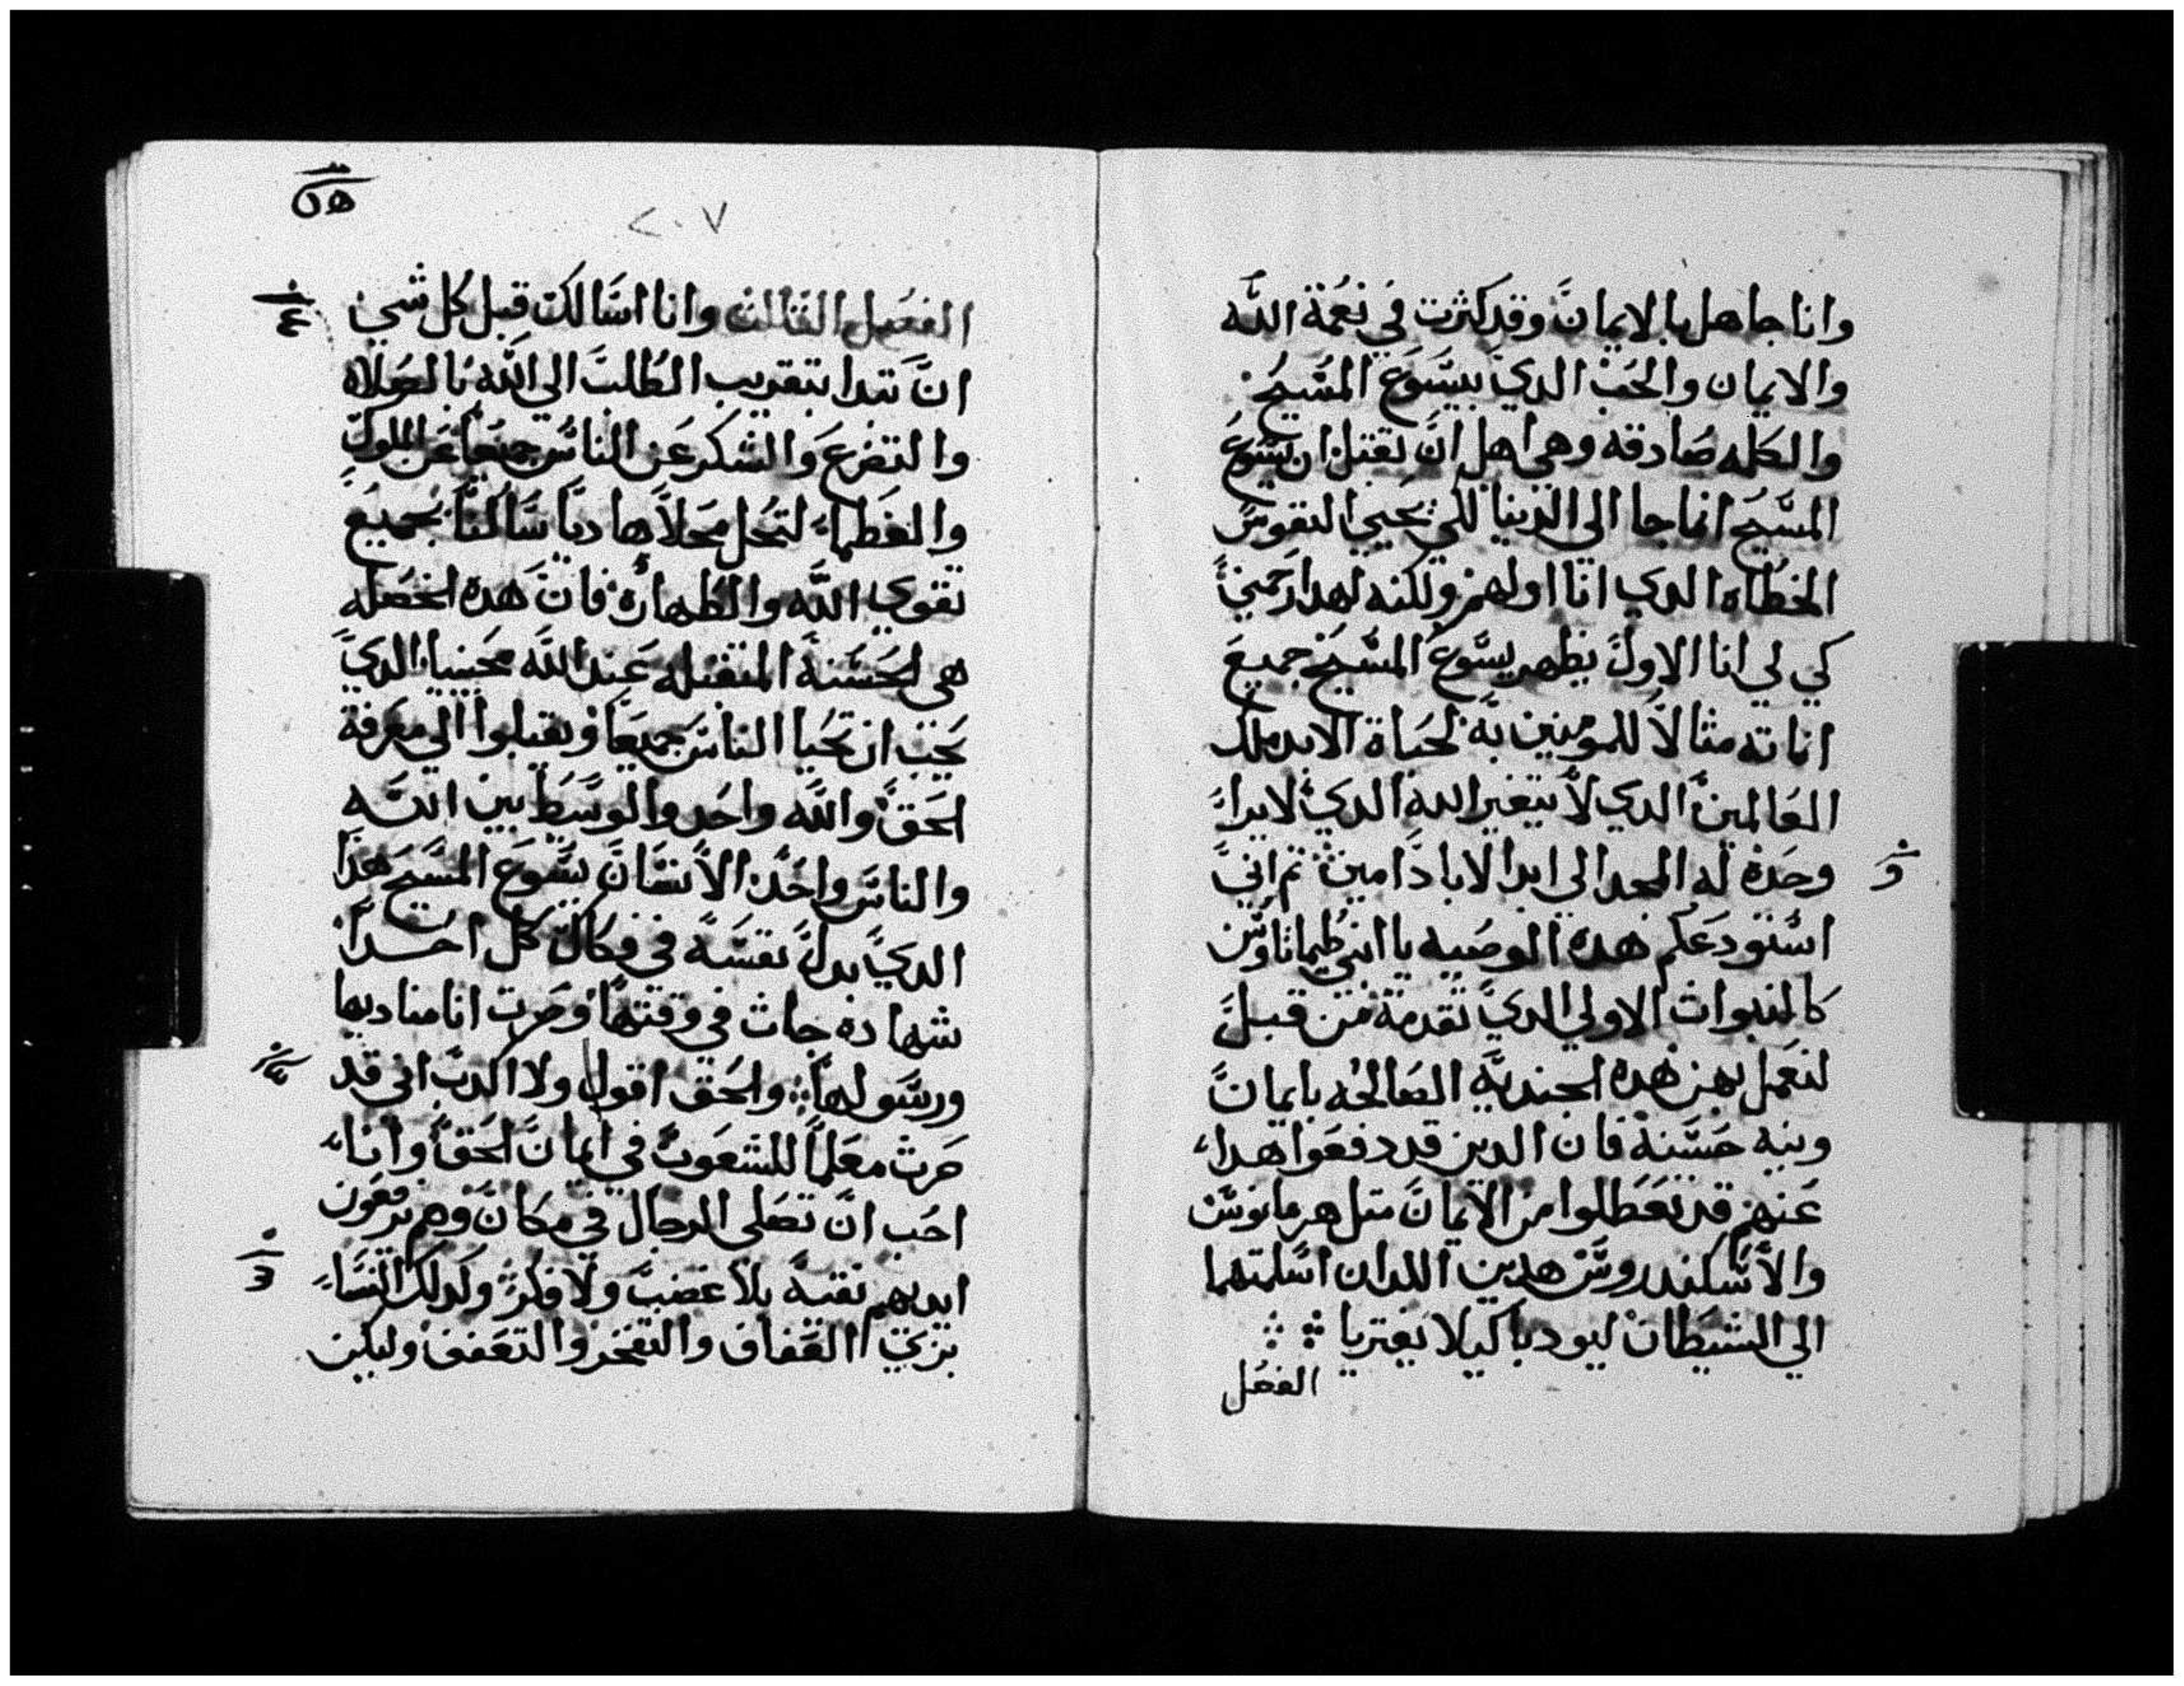 وانا جاهل بالايمان وقد كثرت في نعمة الله
والايمان والحب الدي بيسوع المسيح
والكلمه صادقه وهي اهل ان تقتبل ان يسوع
المسيح انما جا الى الدنيا لكي يحيي النفوس
الخطاه الدي انا اولهم ولكنه لهدا رحمني
كي لي انا الاول يظهر يسوع المسيح جميع
اناته مثالا للمومنين به لحياة الابد ملك
العالمين الدي لا يتغير الله الدي لا يرا
وحده له المجد الى ابد الاباد امين ثم اني
استودعكم هده الوصيه يا ابني طيماتاوس
كالنبوات الاولي الدي تقدمة من قبل
لتعمل بهن هده الجنديه الصالحه بايمان
ونيه حسنة فان الدين قد دفعوا هدا
عنهم قد تعطلوا من الايمان متل هرمانوس
والاسكندروس هدين اللدان اسلمتهما
الي الشيطان ليودبا كيلا يفتريا
الفصل
٢٠٧
الفصل الثالث وانا اسالك قبل كل شي
ان تبدا بتقريب الطلب الى الله بالصلاه
والتضرع والشكر عن الناس جميعا عن الملوك
والعظما لتحل محلا هاديا ساكنا بجميع
تقوى الله والطهارة فان هده الخصله
هي الحسنة المتقبله عند الله محيينا الدي
يحب ان تحيا الناس جميعا ويقبلوا الي معرفة
الحق والله واحد والوسط بين الله
والناس واحد الانسان يسوع المسيح هدا
الدي بدل نفسه في فكاك كل احدا
شهاده جات في وقتها وصرت انا مناديها
ورسولها والحق اقول ولا اكدب اني قد
صرت معلما للشعوب في ايمان الحق وانا
احب ان تصلي الرجال في مكان وهم يرفعون
ايديهم نقية بلا غضب ولا فكر وكدلك النسا
بزي العفاف والتفخر والتعفف وليكن